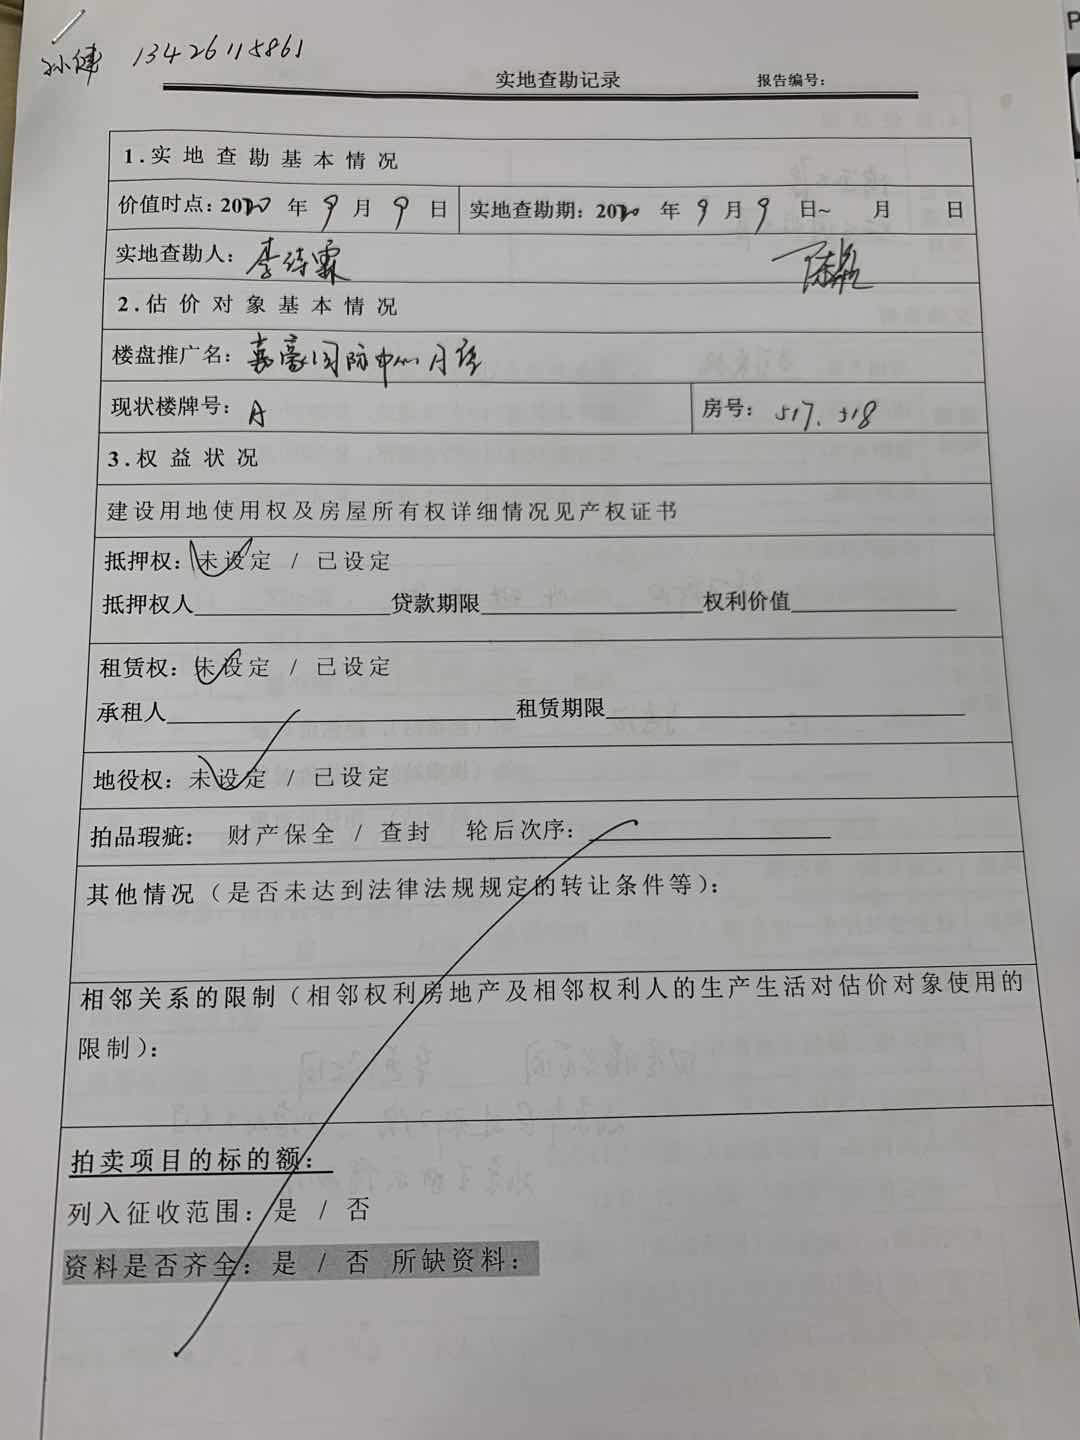 孙健 13426115861
实地查勘记录 报告编号：
1.实地查勘基本情况
价值时点：2020 年 9 月 9 日 实地查勘期：2020 年 9 月 9 日~ 月 日
实地查勘人：李诗霖
2.估价对象基本情况
楼盘推广名：嘉豪国际中心
现状楼牌号：A 房号：517、518
3.权益状况
建设用地使用权及房屋所有权详细情况见产权证书
抵押权：未设定 / 已设定
抵押权人 贷款期限 权利价值
租赁权：未设定 / 已设定
承租人 租赁期限
地役权：未设定 / 已设定
拍品瑕疵： 财产保全 / 查封 轮后次序：
其他情况（是否未达到法律法规规定的转让条件等）：
相邻关系的限制（相邻权利房地产及相邻权利人的生产生活对估价对象使用的
限制）：
拍卖项目的标的额：
列入征收范围：是 / 否
资料是否齐全：是 / 否 所缺资料：